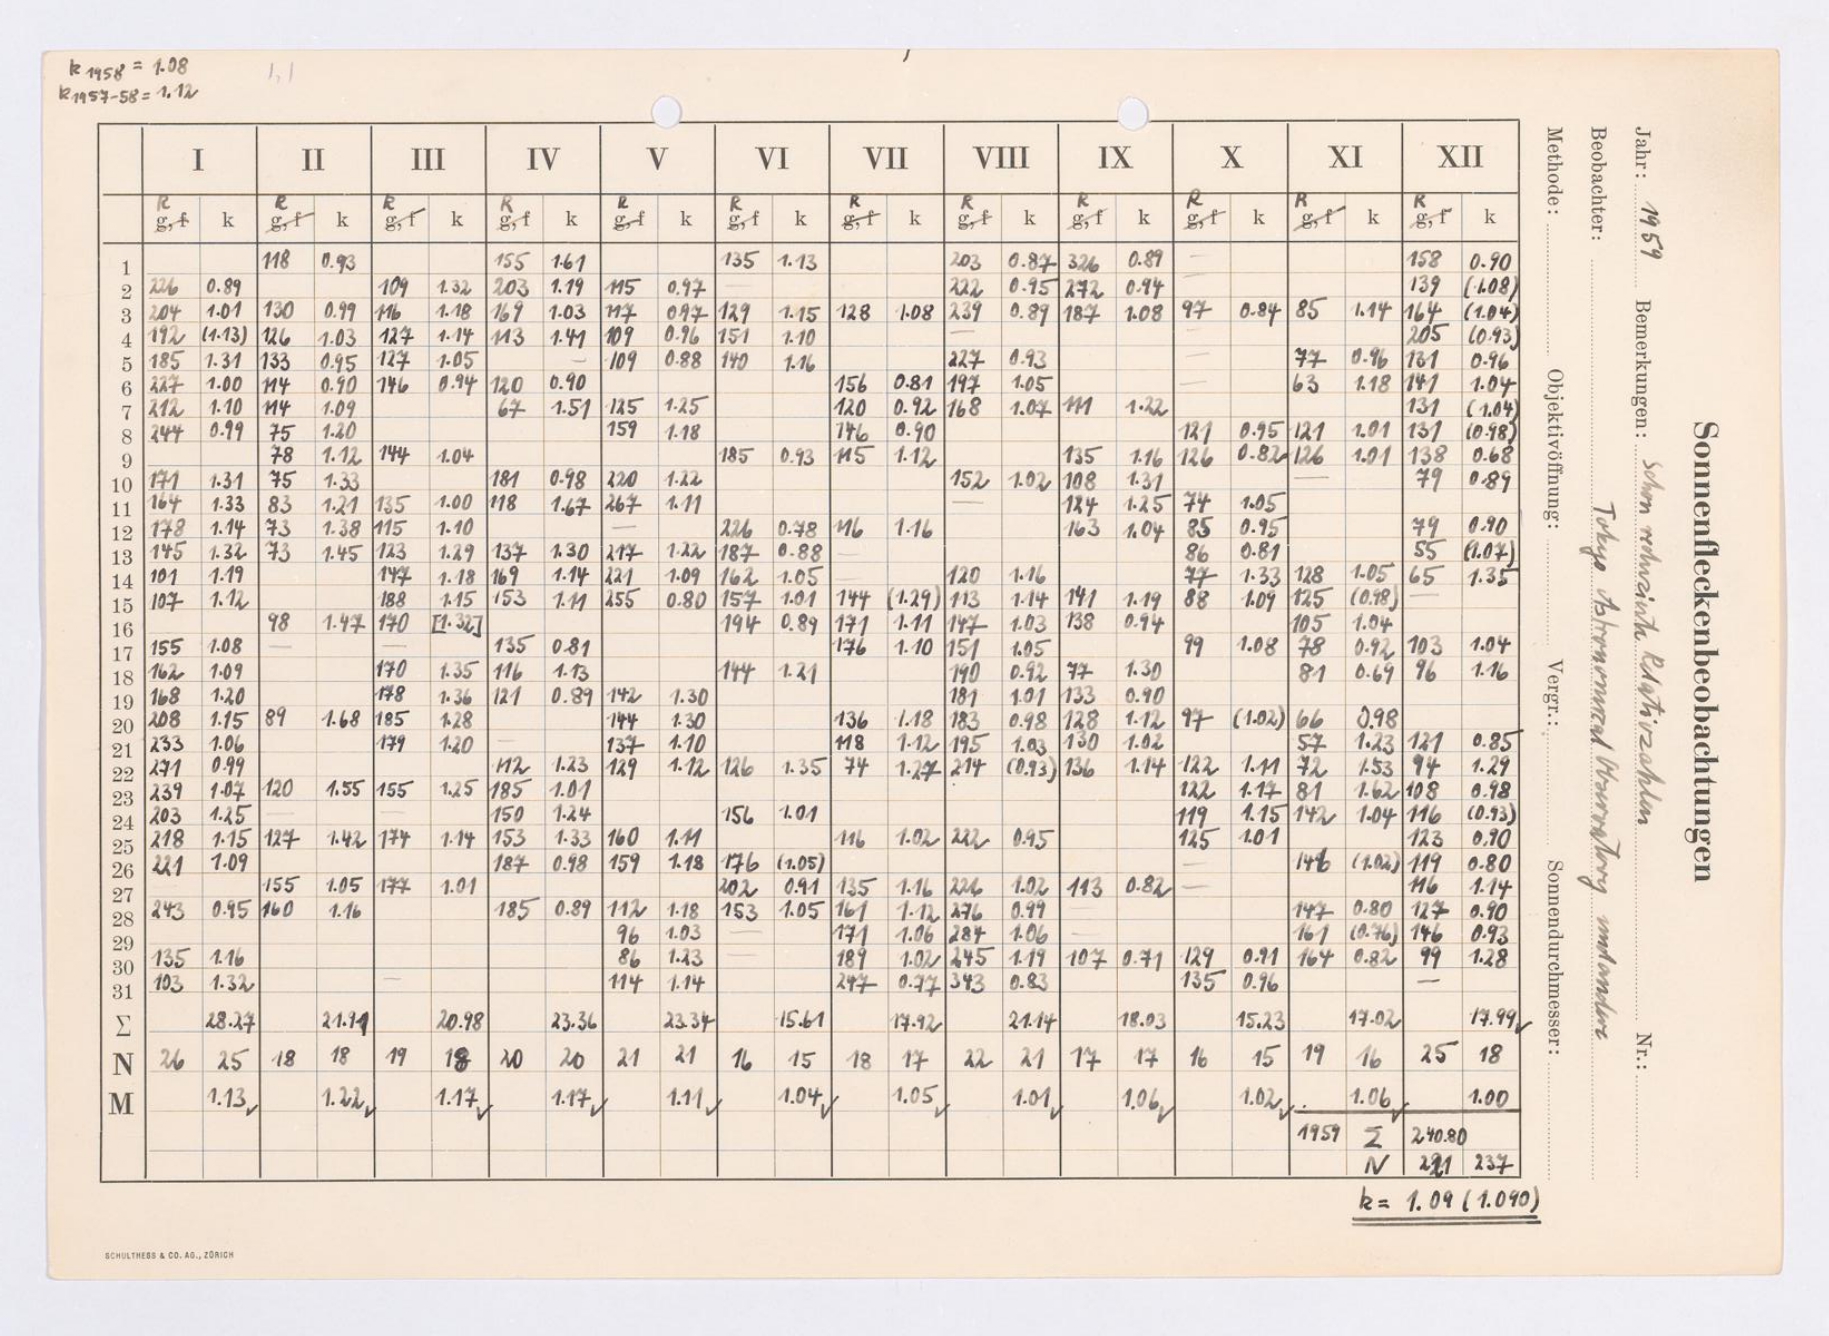 k 1958 = 1.08
k 1957-58 = 1.12
1,1
Sonnenfleckenbeobachtungen
Jahr: 1959 Bemerkungen: schon reduzierte Relativzahlen Nr.:
Beobachter: Tokyo Astronomical Observatory
Methode: Objektivöffnung: Vergr.: Sonnendurchmesser:
I II III IV V VI VII VIII IX X XI XII
R R R R R R R R R R R R
g, f k g, f k g, f k g, f k g, f k g, f k g, f k g, f k g, f k g, f k g, f k g, f k
1 118 0.93 155 1.61 135 1.13 203 0.87 326 0.89 — 158 0.90
2 226 0.89 109 1.32 203 1.19 115 0.97 — 222 0.95 272 0.94 139 (1.08)
3 204 1.01 130 0.99 116 1.18 169 1.03 117 0.97 129 1.15 128 1.08 239 0.89 187 1.08 97 0.84 85 1.14 164 (1.04)
4 192 (1.13) 126 1.03 127 1.14 113 1.41 109 0.96 151 1.10 — — 205 (0.93)
5 185 1.31 133 0.95 127 1.05 — 109 0.88 140 1.16 227 0.93 — 77 0.96 131 0.96
6 227 1.00 114 0.90 146 0.94 120 0.90 156 0.81 197 1.05 — 63 1.18 141 1.04
7 212 1.10 114 1.09 67 1.51 125 1.25 120 0.92 168 1.07 111 1.22 131 (1.04)
8 244 0.99 75 1.20 159 1.18 146 0.90 121 0.95 121 1.01 131 (0.98)
9 78 1.12 144 1.04 185 0.93 115 1.12 135 1.16 126 0.82 126 1.01 138 0.68
10 171 1.31 75 1.33 181 0.98 220 1.22 152 1.02 108 1.31 — 79 0.89
11 164 1.33 83 1.21 135 1.00 118 1.67 267 1.11 — 124 1.25 74 1.05
12 178 1.14 73 1.38 115 1.10 — 226 0.78 116 1.16 163 1.04 85 0.95 79 0.90
13 145 1.32 73 1.45 123 1.29 137 1.30 217 1.22 187 0.88 — 86 0.81 55 (1.07)
14 101 1.19 147 1.18 169 1.14 221 1.09 162 1.05 — 120 1.16 77 1.33 128 1.05 65 1.35
15 107 1.12 188 1.15 153 1.11 255 0.80 157 1.01 144 (1.29) 113 1.14 141 1.19 88 1.09 125 (0.98) —
16 98 1.47 170 [1.32] 194 0.89 171 1.11 147 1.03 138 0.94 105 1.04
17 155 1.08 — — 135 0.81 176 1.10 151 1.05 99 1.08 78 0.92 103 1.04
18 162 1.09 170 1.35 116 1.13 144 1.21 190 0.92 77 1.30 81 0.69 96 1.16
19 168 1.20 178 1.36 121 0.89 142 1.30 181 1.01 133 0.90
20 208 1.15 89 1.68 185 1.28 144 1.30 136 1.18 183 0.98 128 1.12 97 (1.02) 66 0.98
21 233 1.06 179 1.20 — 137 1.10 118 1.12 195 1.03 130 1.02 57 1.23 121 0.85
22 271 0.99 112 1.23 129 1.12 126 1.35 74 1.27 214 (0.93) 136 1.14 122 1.11 72 1.53 94 1.29
23 239 1.07 120 1.55 155 1.25 185 1.01 122 1.17 81 1.62 108 0.98
24 203 1.25 — — 150 1.24 156 1.01 119 1.15 142 1.04 116 (0.93)
25 218 1.15 127 1.42 174 1.14 153 1.33 160 1.11 116 1.02 222 0.95 125 1.01 123 0.90
26 221 1.09 187 0.98 159 1.18 176 (1.05) — 146 (1.02) 119 0.80
27 — 155 1.05 177 1.01 202 0.91 135 1.16 226 1.02 113 0.82 — 116 1.14
28 243 0.95 160 1.16 185 0.89 112 1.18 153 1.05 161 1.12 276 0.99 — 147 0.80 127 0.90
29 96 1.03 — 171 1.06 284 1.06 — 161 (0.76) 146 0.93
30 135 1.16 86 1.23 — 189 1.02 245 1.19 107 0.71 129 0.91 164 0.82 99 1.28
31 103 1.32 — 114 1.14 247 0.77 343 0.83 135 0.96 —
Σ 28.27 21.91 20.98 23.36 23.34 15.61 17.92 21.14 18.03 15.23 17.02 17.99 ✓
N 26 25 18 18 19 18 20 20 21 21 16 15 18 17 22 21 17 17 16 15 19 16 25 18
M 1.13 ✓ 1.22 ✓ 1.17 ✓ 1.17 ✓ 1.11 ✓ 1.04 ✓ 1.05 ✓ 1.01 ✓ 1.06 ✓ 1.02 ✓ 1.06 ✓ 1.00
1959 Σ 240.80
N 237
k = 1.09 (1.090)
SCHULTHESS & CO. AG., ZÜRICH